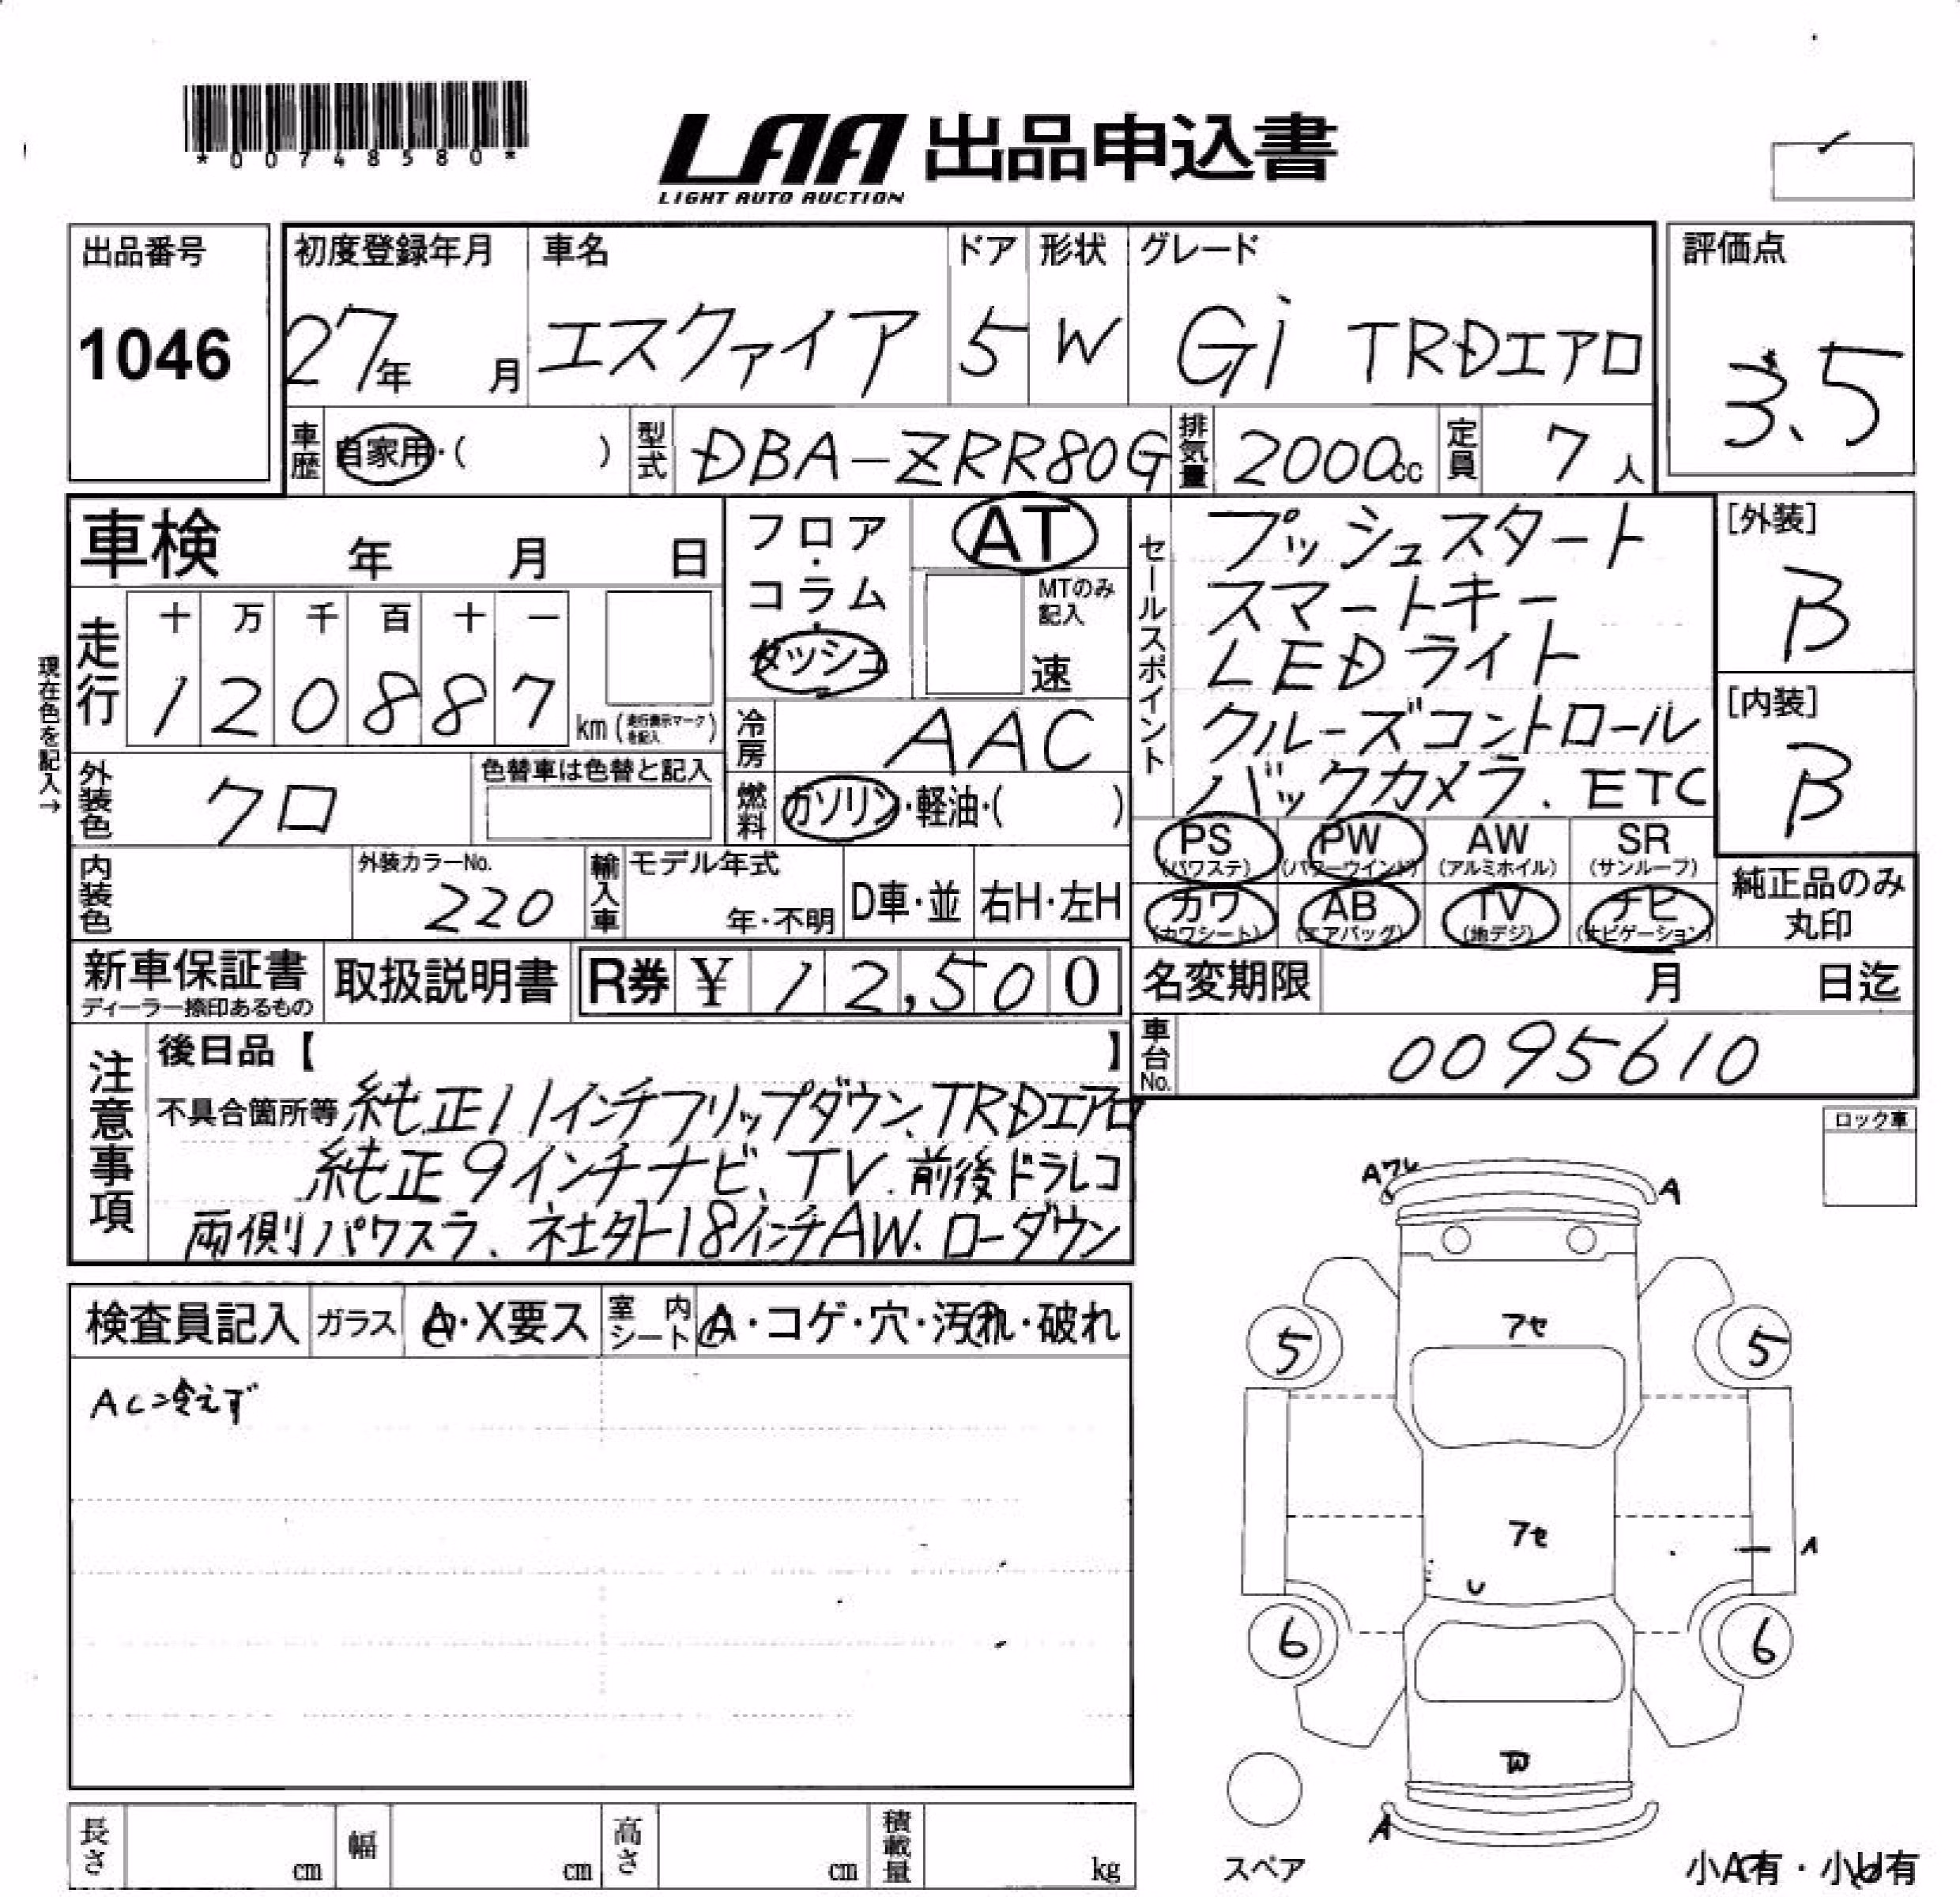 *00748580*
LAA 出品申込書
LIGHT AUTO AUCTION
出品番号
1046
初度登録年月 車名 ドア 形状 グレード
27年 月 エスクァイア 5 W Gi TRDエアロ
評価点
3.5
車歴 自家用・( ) 型式 DBA-ZRR80G 排気量 2000cc 定員 7人
車検 年 月 日
フロア・コラム・ダッシュ
AT
MTのみ記入
速
セールスポイント
プッシュスタート
スマートキー
LEDライト
クルーズコントロール
バックカメラ、ETC
[外装]
B
[内装]
B
現在色を記入→
走行 十 万 千 百 十 一
1 2 0 8 8 7 km (走行表示マークを記入)
冷房 AAC
外装色 クロ 色替車は色替と記入
燃料 ガソリン・軽油・( )
PS (パワステ) PW (パワーウインド) AW (アルミホイル) SR (サンルーフ)
カワ (カワシート) AB (エアバッグ) TV (地デジ) ナビ (ナビゲーション)
純正品のみ丸印
内装色 外装カラーNo. 220 輸入車 モデル年式 年・不明 D車・並 右H・左H
新車保証書 ディーラー捺印あるもの 取扱説明書 R券 ¥ 12,500
名変期限 月 日迄
車台No. 0095610
注意事項
後日品【 】
不具合箇所等 純正11インチフリップダウン、TRDエアロ
純正9インチナビ、TV、前後ドラレコ
両側パワスラ、社外18インチAW、ローダウン
ロック車
検査員記入 ガラス A・X要ス 室内シート A・コゲ・穴・汚れ・破れ
AC冷えず
Aワレ A
アセ
5 5
アセ
A
U
6 6
W
A
スペア
長さ cm 幅 cm 高さ cm 積載量 kg
小A有・小U有